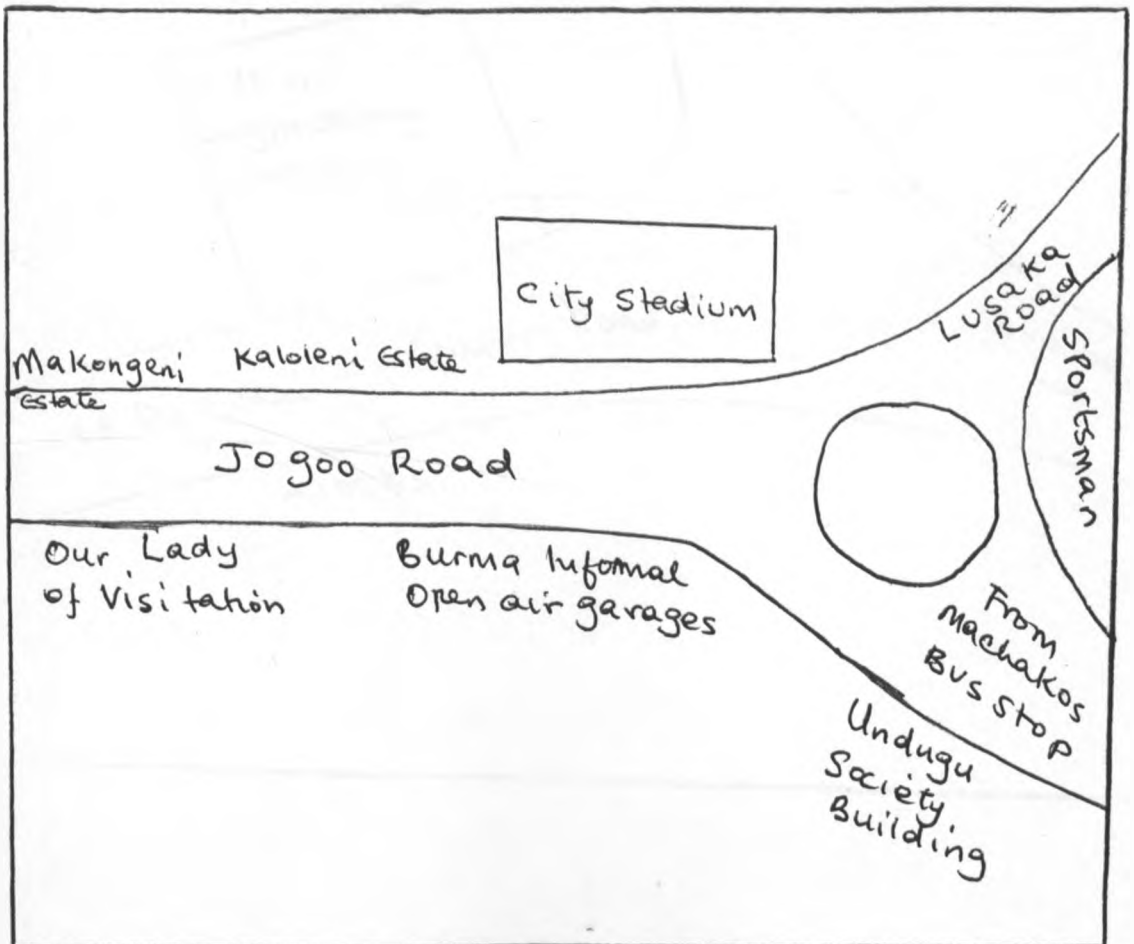 City Stadium
LUSAKA
ROAD
Sportsman
Makongeni
Estate
Kaloleni Estate
Jogoo Road
Our Lady
of Visitation
Burma Informal
Open air garages
From
Machakos
Bus Stop
Undugu
Society
Building